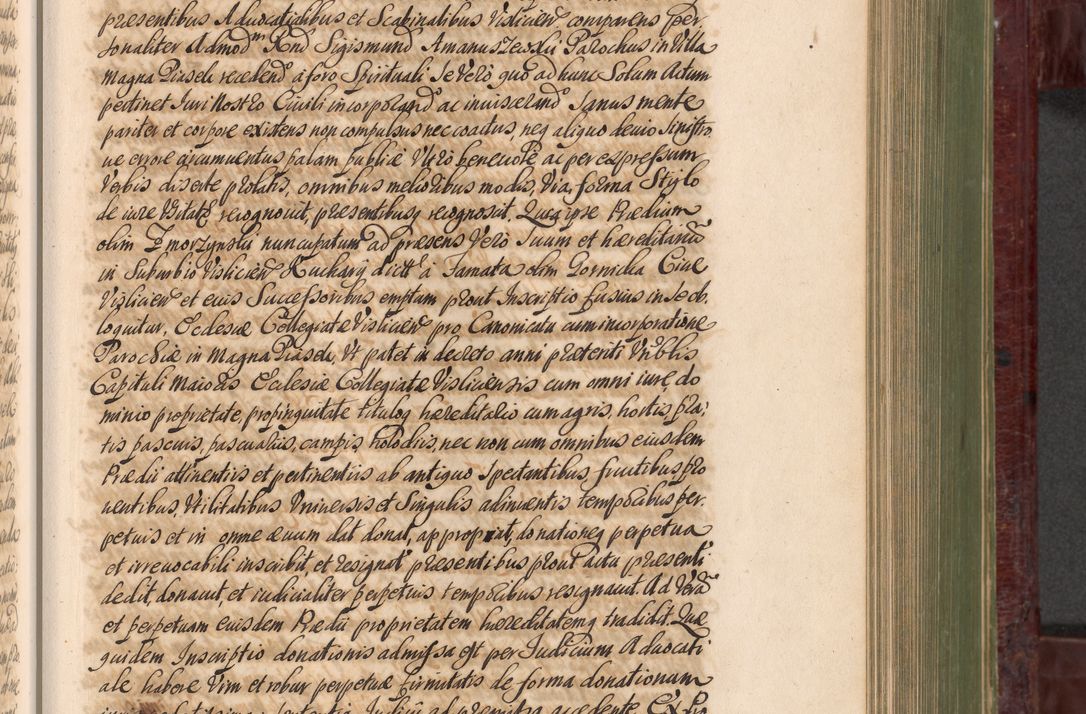 præsentibus Aduocatialibus et Scabinalibus Visliciens comparens per,
sonaliter Admodm Rnd Sigismund Amanuszewski Parochus in Villa
Magna Piaseki recedend a foro Spirituali Se Vero quo ad hunc Solum Actum
pertinet Juri Nostro Ciuili incorporand ac inuiscerand Sanus mente
pariter et corpore existens non compulsus nec coactus, neq aliquo deuio Sinistro,
ue errore circumuentus, palam publice Vltro beneuole ac per expressum
Verbis diserte prolatis, omnibus melioribus modis, Via, forma Stylo
de iure Vsitato recognouit, præsentibusq recognoscit. Quia ipse Prædium
olim Zmorzynski nuncupatum ad præsens Vero Suum et hæreditariu
in Suburbio Visliciens Kuchary dict a Famata olim Gornicka Ciue
Visliciens et eius Successoribus emptam prout Inscriptio fusius in Se ob,
loquitur, Ecclesiæ Collegiatæ Visliciens pro Canonicatu cum incorporatione
Parochiæ in Magna Piaseki, Vt patet in decreto anni præteriti Vnblis
Capituli Maioris Ecclesiæ Collegiatæ Visliciensis cum omni iure, do
minio proprietate, propinquitate tituloq hæreditario cum agris, hortis, pra,
tis pascuis, pascualiis, campis, rolodiis, nec non cum omnibus eiusdem
Prædii attinentiis et pertinentiis ab antiquo Spectantibus, fructibus, pro
uentibus, Vtilitatibus Vniuersis et Singulis adinuentis temporibus per,
petuis et in omne æuum dat donat, appropriat, donationeq perpetua
et irreuocabili inscribit, et resignat præsentibus prout actu præsenti
dedit, donauit, et iudicialiter perpetuis temporibus resignauit. Ad Verā
et perpetuam eiusdem Prædii proprietatem hæreditatemq tradidit. Quæ
quidem Inscriptio donationis admissa est per Judicium Aduocati
ale habere Vim et robur perpetuæ firmitatis de forma donationum
ad præmissa accedente. Ex Pro